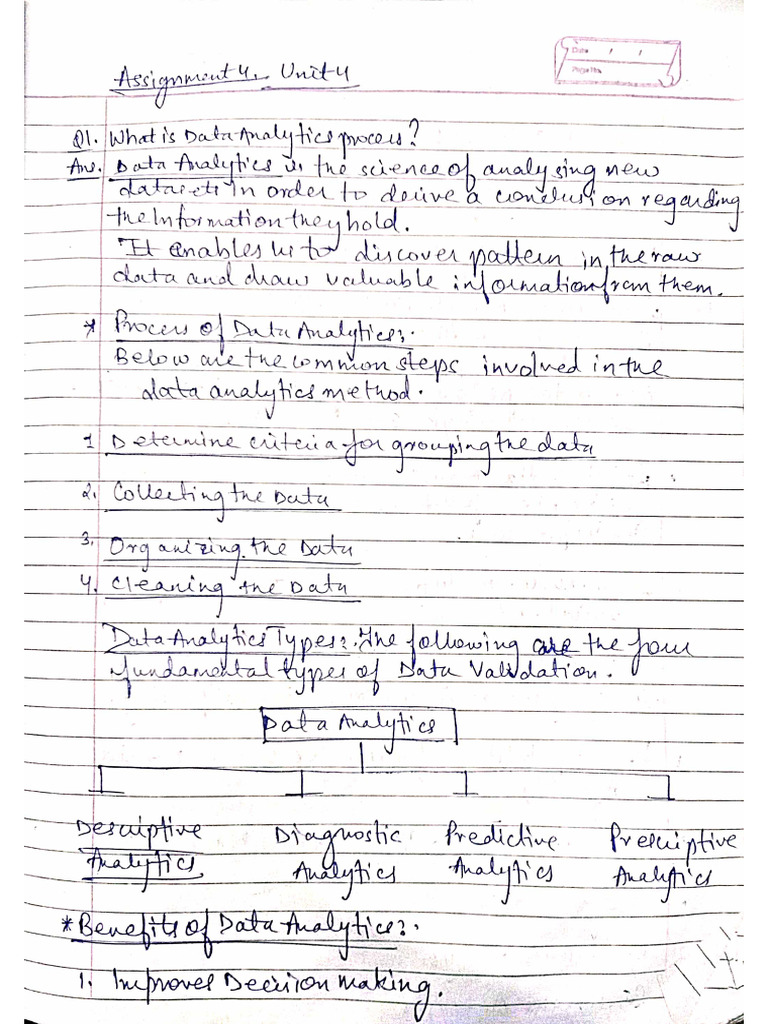 Assignment 4. Unit 4
Date / /
Page No.
Q1. What is Data Analytics process?
Ans. Data Analytics is the science of analysing new
datasets In order to derive a conclusion regarding
the Information they hold.
It enables us to discover pattern in the raw
data and draw valuable information from them.
* Process of Data Analytics:.
Below are the common steps involved in the
data analytics method.
1 Determine criteria for grouping the data
2. Collecting the Data
3. Organizing the Data
4. Cleaning the Data
Data Analytics Types:. The following are the four
fundamental types of Data Validation.
Data Analytics
Descriptive Diagnostic Predictive Prescriptive
Analytics Analytics Analytics Analytics
* Benefits of Data Analytics:.
1. Improves Decision making.